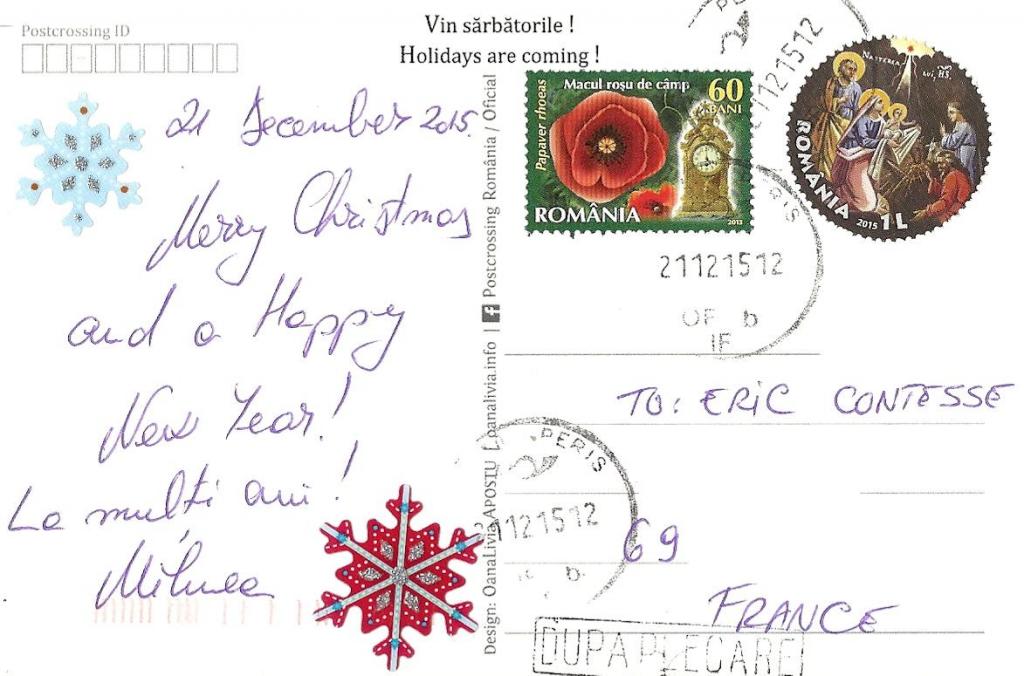 Postcrossing ID
Vin sărbătorile !
Holidays are coming !
21 December 2015
Merry Christmas
and a Happy
New Year!
La mulți ani!
Design: OanaLivia APOSTU | oanalivia.info | f Postcrossing România / Oficial
Papaver rhoeas
Macul roșu de câmp
60
BANI
ROMÂNIA
2013
NAȘTEREA LUI, HS
ROMÂNIA
2015 1L
PERIS
21121512
PERIS
21121512
OF b
IF
TO: ERIC CONTESSE
PERIS
1121512
69
FRANCE
DUPA PLECARE